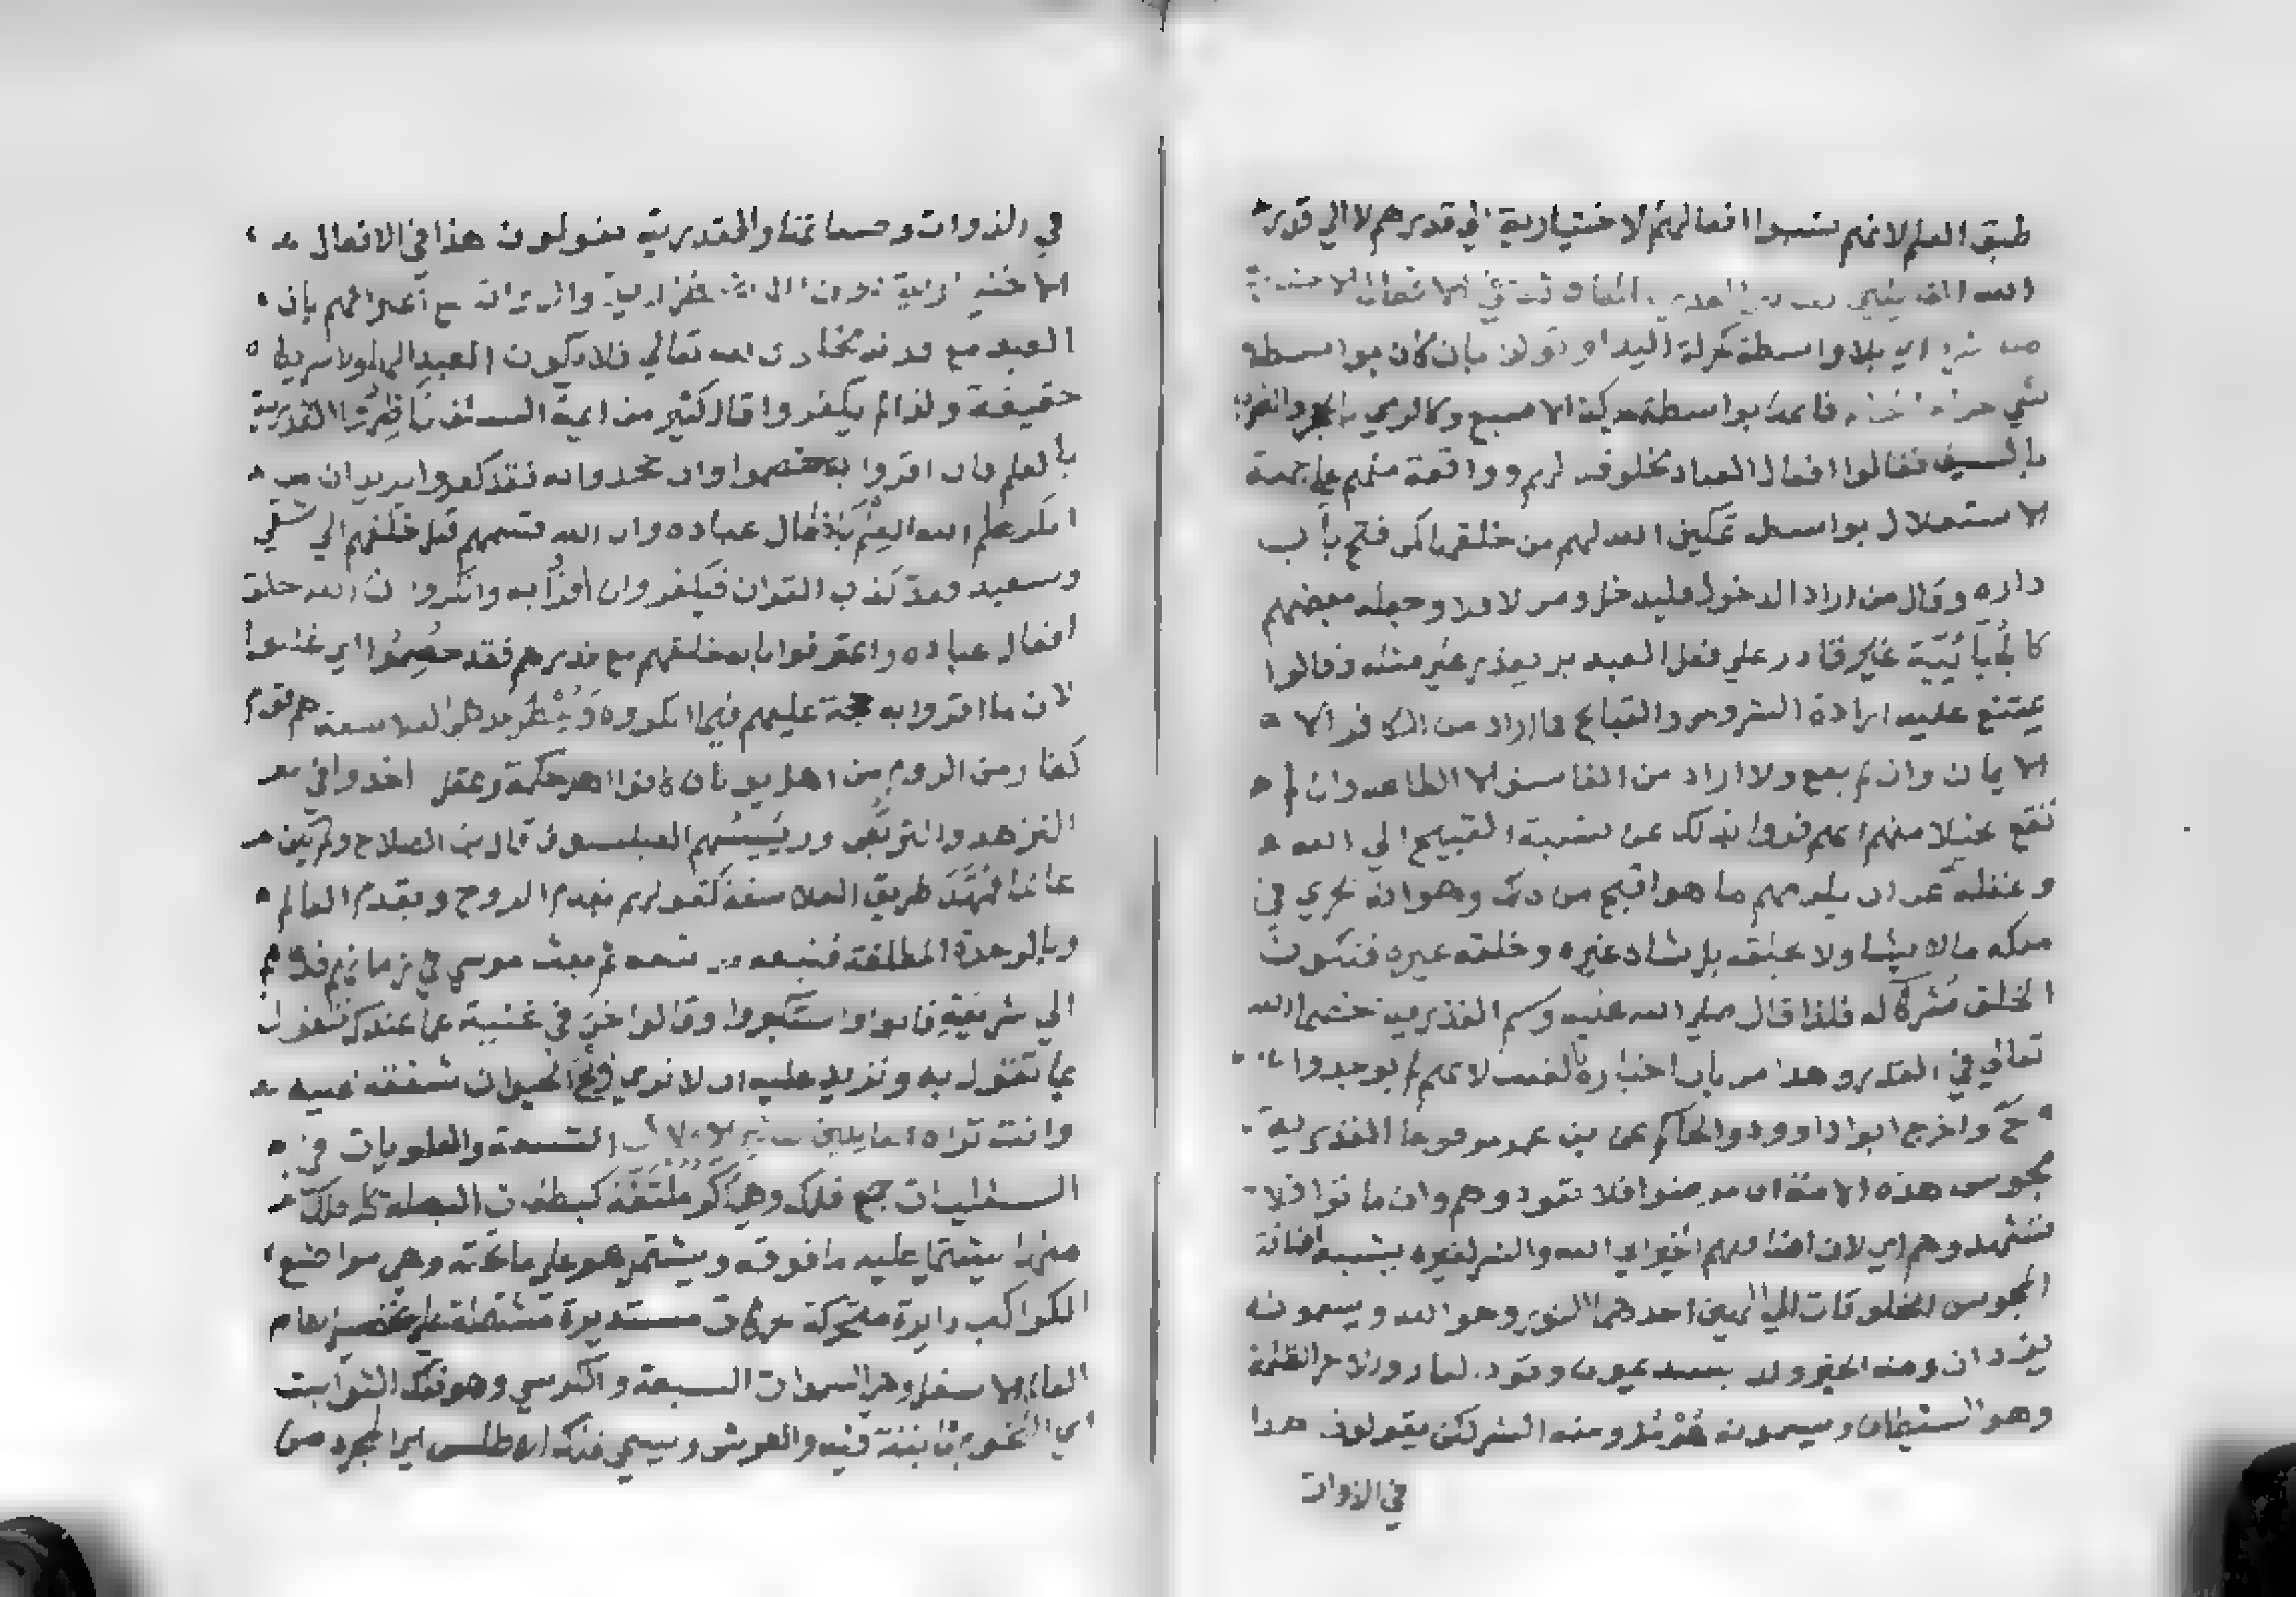 طبق العلم لانهم نسبوا افعالهم الاختيارية الي قدرهم لا الي قدرة
الله
اي بلا واسطة كحركة اليد او تولد بان كان بواسطة
شي بواسطة الاصبع وكالرمي بالحجر والضرب
بالسيف فقالوا افعال العباد مخلوقة لهم وواقعة منهم علي جهة
الاستقلال بواسطة تمكين الله لهم من خلقها كمن فتح باب
داره وقال من اراد الدخول فليدخل ومن لا فلا وجعله بعضهم
كالجبائية غير قادر علي فعل العبد بل يقدر علي مثله وقالوا
يمتنع عليه ارادة الشرور والقبائح فما اراد من الكافر الا
الايمان وان لم يقع ولا اراد من الفاسق الا الطاعة وان لم
تقع تخيلا منهم انهم فروا بذلك عن نسبة القبيح الي الله
وغفلة عن ان يلزمهم ما هو اقبح من ذلك وهو انه يجري في
ملكه ما لا يشا ولا يخلقه بل يشاه غيره وخلقه غيره فتكون
الخلق شركا له فلذا قال صلي الله عليه وسلم القدرية خصما الله
تعالي في القدر وهذا من باب اخباره بالغيب لانهم لم يوجدوا
واخرج ابوا داوود والحاكم عن بن عمر مرفوعا القدرية
مجوس هذه الامة ان مرضوا فلا تعودوهم وان ماتوا فلا
تشهدوهم اي لان اضافتهم الخير الي الله والشر لغيره يشبه اضافة
المجوس المخلوقات الي الهين احدهما النور وهو الله ويسمونه
يزدان ومنه الخير ولذا يستديمون وقود النار والاخر الظلمة
وهو الشيطان ويسمونه هرمز ومنه الشر لكن يقولون هذا
في الذوات
في الذوات وصفاتها والقدرية يقولون هذا في الافعال
الاختيارية دون الاضطرارية والذوات مع اعترافهم بان
العبد مع قدرته مخلوق لله تعالي فلا يكون العبد الها ولا شريكا
حقيقة ولذا لم يكفروا قال كثير من ايمة السلف ناظروا القدرية
بالعلم فان اقروا به خصموا وان جحدوا به فقد كفروا يريدان من
انكر علم الله القديم بافعال عباده وان الله قسمهم قبل خلقهم الي شقي
وسعيد فقد كذب القران فيكفر وان اقروا به وانكروا ان الله خلق
افعال عباده واعترفوا بانه خلقهم مع قدرهم فقد خصموا اي غلبوا
لان ما اقروا به حجة عليهم فيما انكروه الفلاسفة هم قوم
كفار من الروم من اهل يونان كانوا اهل حكمة وعقل اخذوا في
التزهد والترهب ورييسهم الفيلسوف قال بن الصلاح ولم يكن
عالما فمهد طريق الفلاسفة كقولهم بقدم الروح وبقدم العالم
وبالوحدة المطلقة فتبعه من تبعه ثم بعث موسي في زمانهم فدعاهم
الي شريعته فابوا واستكبروا وقالوا نحن في غنية عما عندك فنقول
بما تقول به ونزيد عليه ان لا نري ذبح الحيوان شفقة عليه
وانت تراه القايلين التسعة والعلويات في
السفليات جمع فلك وهي اكر ملتفة كطبقات البصلة كل فلك
منها يشتمل عليه ما فوقه ويشتمل هو علي ما تحته وهي مواضع
الكواكب دايرة متحركة حركات مستديرة
العالم الاسفل وهي السموات السبعة والكرسي وهو فلك الثوابت
اي النجوم ثابتة فيه والعرش ويسمي فلك الاطلس اي المجرد من